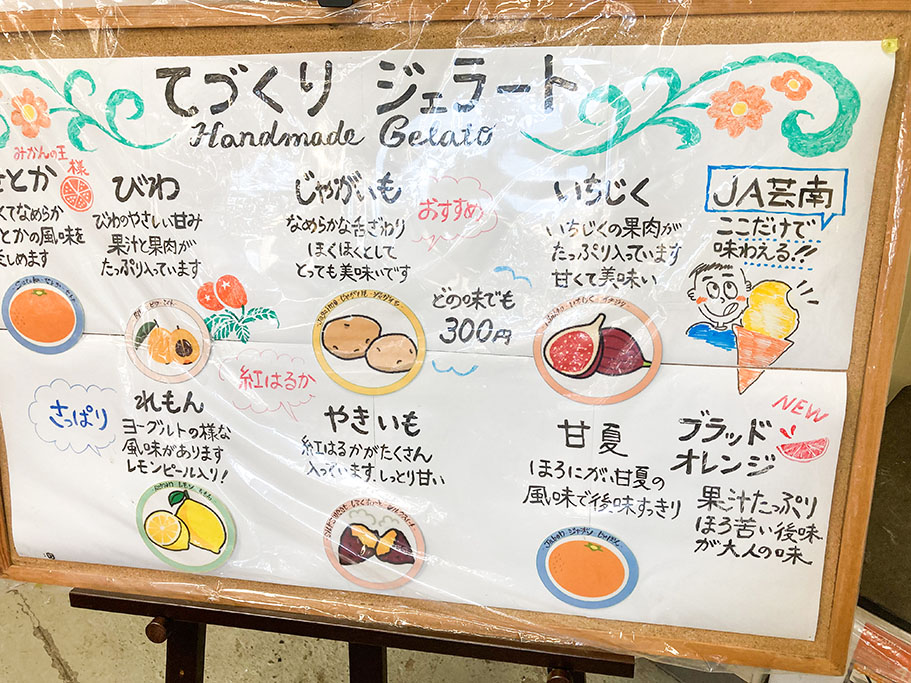 てづくり ジェラート
Handmade Gelato
みかんの王様
さとか
くてなめらか
とかの風味を
楽しめます
びわ
びわのやさしい甘み
果汁と果肉が
たっぷり入っています
じゃがいも
なめらかな舌ざわり
ほくほくとして
とっても美味いです
おすすめ
どの味でも
300円
いちじく
いちじくの果肉が
たっぷり入っています
甘くて美味い
JA芸南
ここだけで
味わえる!!!
さっぱり
れもん
ヨーグルトの様な
風味があります
レモンピール入り!
紅はるか
やきいも
紅はるかがたくさん
入っています。しっとり甘い
甘夏
ほろにがい甘夏の
風味で後味すっきり
NEW
ブラッド
オレンジ
果汁たっぷり
ほろ苦い後味
が大人の味